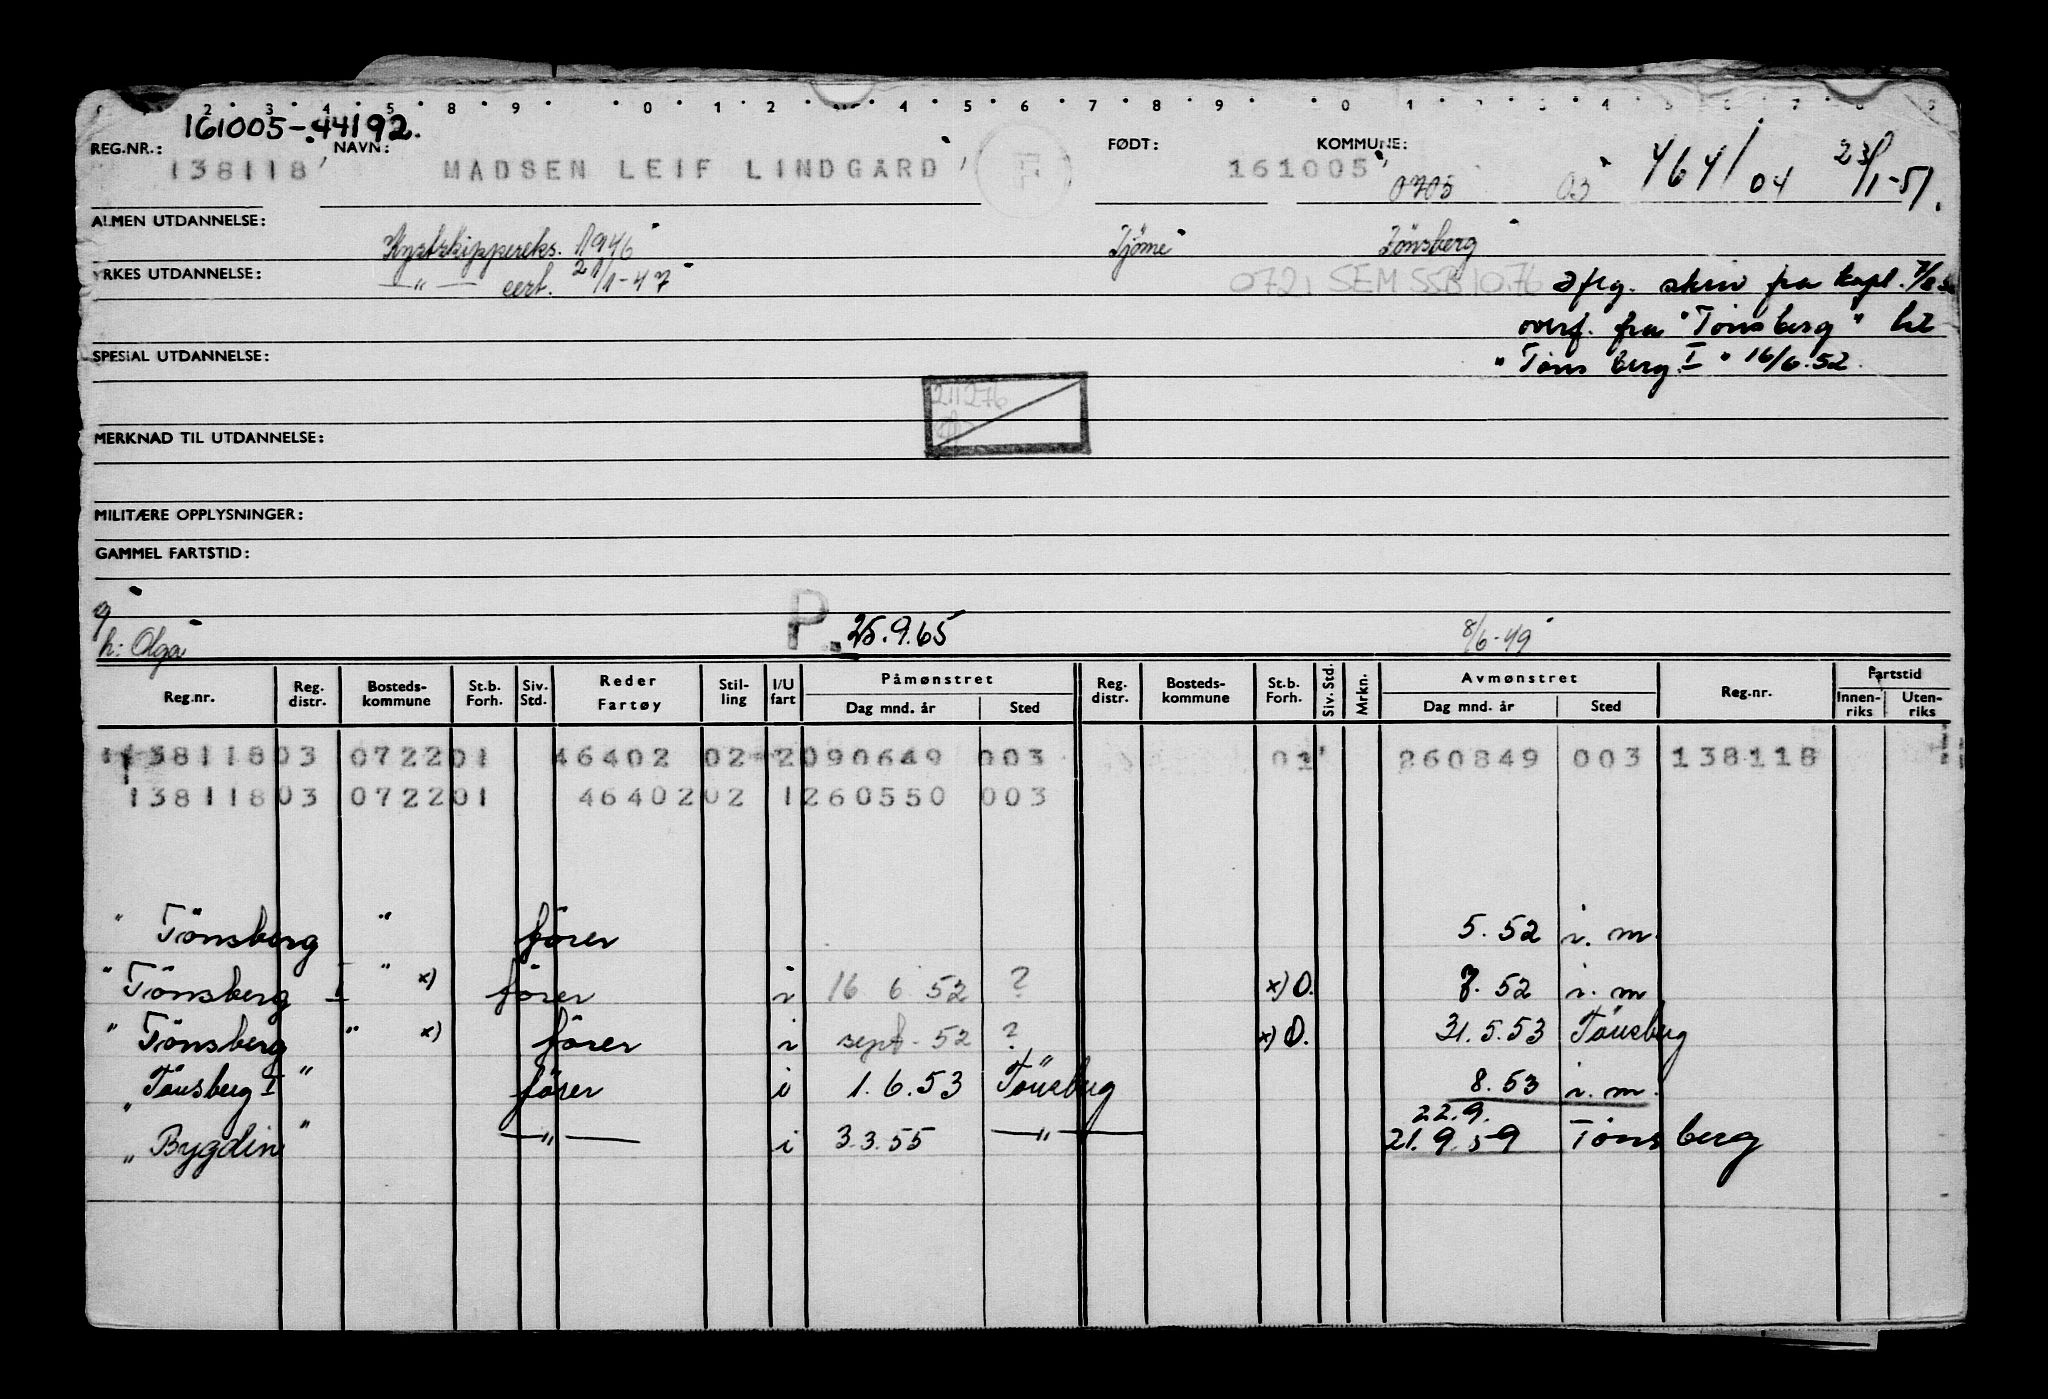 161005-44192.
REG.NR.: NAVN: FØDT: KOMMUNE:
138118 MADSEN LEIF LINDGARD F. 161005 0705 03 464/04 23/1-51.
ALMEN UTDANNELSE: Kystskippereks. 1946 Tjöme Tönsberg
YRKES UTDANNELSE: —"— cert. 21/1-47 0721 SEM SSB 10.76
iflg. skriv fra kapt.
overf. fra "Tönsberg" til
SPESIAL UTDANNELSE: "Tönsberg I" 16/6.52.
211276
MERKNAD TIL UTDANNELSE:
MILITÆRE OPPLYSNINGER:
GAMMEL FARTSTID:
g
h: Olga P. 25.9.65 8/6-49
Reg.nr. Reg. distr. Bosteds-kommune St.b. Forh. Siv. Std. Reder Fartøy Stil-ling I/U fart Påmønstret Dag mnd. år Sted Reg. distr. Bosteds-kommune St.b. Forh. Siv. Std. Mrkn. Avmønstret Dag mnd. år Sted Reg.nr. Fartstid Innen-riks Uten-riks
138118 03 0722 01 46402 02 2 090649 003 01 260849 003 138118
138118 03 0722 01 46402 02 1 260550 003
"Tönsberg" förer 5.52 i.m.
"Tönsberg I" x) förer i 16 6 52 ? x) O. 7.52 i.m
"Tönsberg" x) förer i sept. 52 ? x) O. 31.5.53 Tönsberg
"Tönsberg I" förer i 1.6.53 Tönsberg 8.53 i.m.
22.9.
"Bygdin" —"— i 3.3.55 —"— 21.9.59 Tönsberg